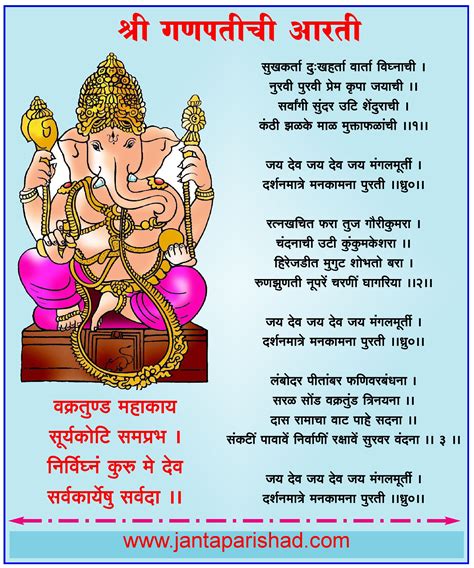 श्री गणपतीची आरती
सुखकर्ता दुःखहर्ता वार्ता विघ्नाची ।
नुरवी पुरवी प्रेम कृपा जयाची ।
सर्वांगी सुंदर उटि शेंदुराची ।
कंठी झळके माळ मुक्ताफळांची ।।१।।
जय देव जय देव जय मंगलमूर्ती ।
दर्शनमात्रे मनकामना पुरती ।।ध्रु०।।
रत्नखचित फरा तुज गौरीकुमरा ।
चंदनाची उटी कुंकुमकेशरा ।
हिरेजडीत मुगुट शोभतो बरा ।
रुणझुणती नूपरें चरणीं घागरिया ।।२।।
जय देव जय देव जय मंगलमूर्ती ।
दर्शनमात्रे मनकामना पुरती ।।ध्रु०।।
लंबोदर पीतांबर फणिवरबंधना ।
सरळ सोंड वक्रतुंड त्रिनयना ।
दास रामाचा वाट पाहे सदना ।
संकटीं पावावें निर्वाणीं रक्षावें सुरवर वंदना ।। ३ ।।
जय देव जय देव जय मंगलमूर्ती ।
दर्शनमात्रे मनकामना पुरती ।।ध्रु०।।
वक्रतुण्ड महाकाय
सूर्यकोटि समप्रभ ।
निर्विघ्नं कुरु मे देव
सर्वकार्येषु सर्वदा ।।
www.jantaparishad.com